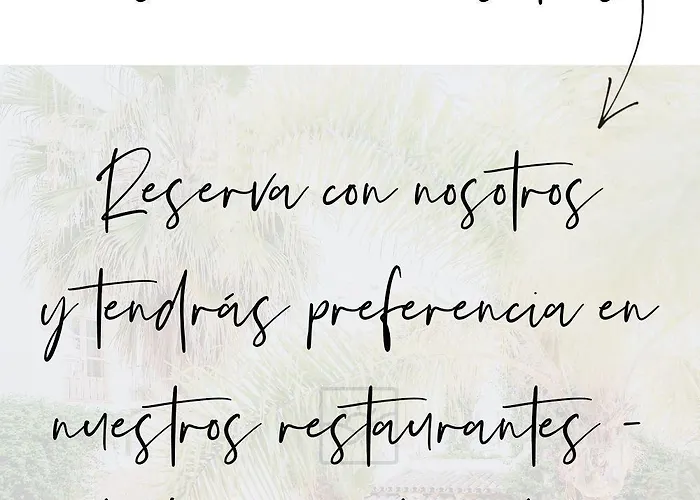 Reserva con nosotros
y tendrás preferencia en
nuestros restaurantes -